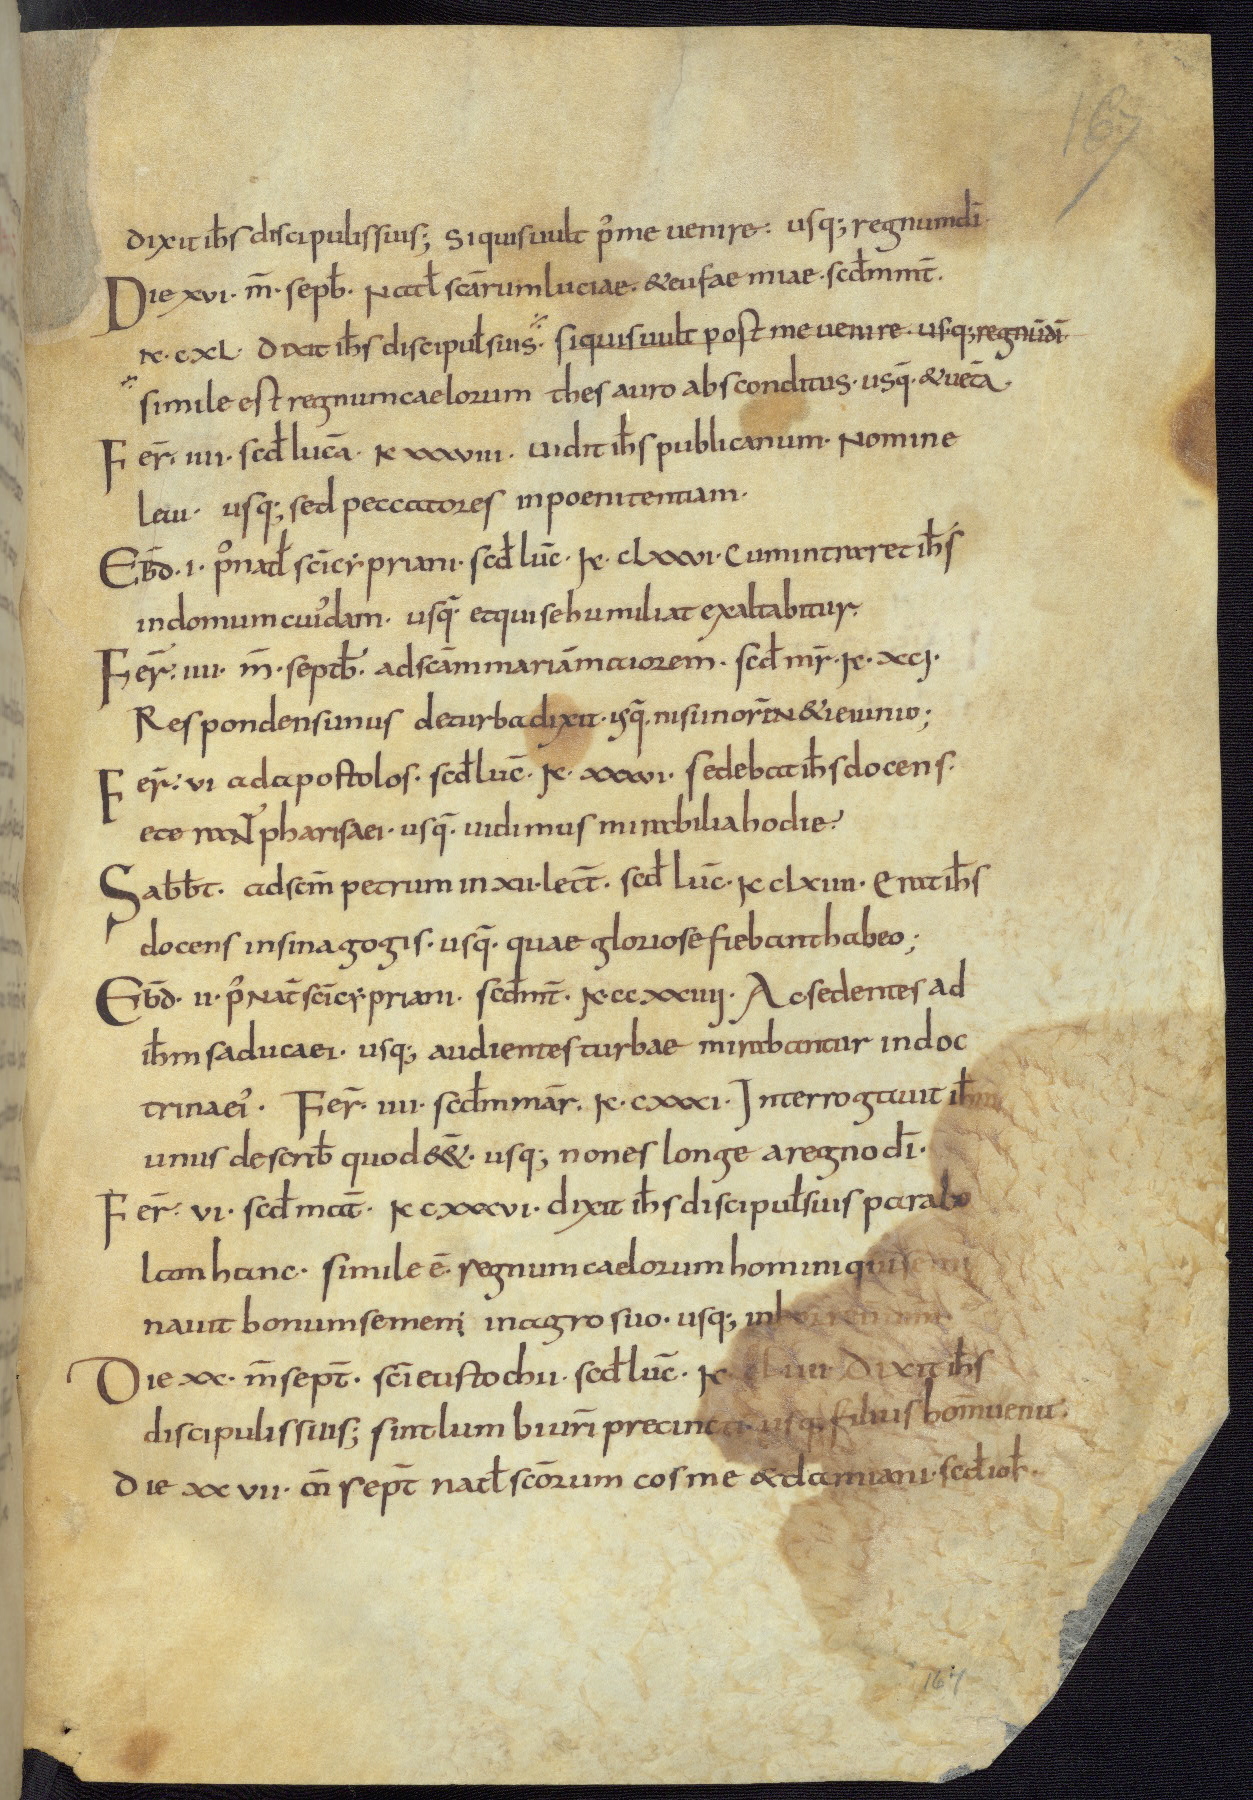 167
dixit ih̅s discipulis suis; Si quis uult p̾ me uenire: usq; regnum dı̅.
Die xvi. m̅. sepƀ. Natał sc̅arum luciae. & eufaemiae. scđm mt̅.
K. cxl. Dixit ih̅s discipuł suis. si quis uult post me uenire. usq; regnu̅ dı̅.
simile est regnum caelorum thesauro absconditus. usq̅. & uet̅a.
Fer̅. iiii. scđ luc̅a. K xxxviii. uidit ih̅s publicanum. Nomine
leui. usq; sed peccatores in poenitentiam.
Eƀd. i. p̾ natał sc̅i cypriani. scđ luc̅. K. clxxvi. Cum intraret ih̅s
in domum cui̾dam. usq̅ et qui se humiliat exaltabitur.
Fer̅. iiii. m̅. septƀ. ad sc̅am maria̅m aiorem. scđ mr̅. K. xcj.
Respondens unus de turba dixit. usq̅. nisi in or̅ıN & ieiunio;
Fer̅. vi ad apostolos. scđ luc̅. K. xxxvi. sedebat ih̅s docens.
ete raN̾ pharisaei. usq̅. uidimus mirabilia hodie.
Sabƀt. ad sc̅m petrum in xii. lect̅. scđ luc̅. K clxiiii. Erat ih̅s
docens in sinagogis. usq̅. quae gloriose fiebant habeo;
Eƀd. ii. p̾ Nat̅ sc̅i cypriani. scđ mt̅. K. ccxxiiij. Acsedentes ad
ih̅m saducaei. usq; audientes turbae mirabantur in doc
trina ei̾. Fer̅. iiii. scđm mar̅. K. cxxxi. Interrogauit ih̅m
unus de scriƀ quod &&̅. usq; non es longe a regno dı̅.
Fer̅. vi. scđ mat̅. K cxxxvi. dixit ih̅s discipuł suis parabo
lam hanc. simile e̅. regnum caelorum homini qui semi
nauit bonum semen in agro suo. usq;
Die xx. m̅ sept̅. sc̅i eustochii. scđ luc̅. K. Dixit ih̅s
discipulis suis; sint lumbi ur̅i precincti. usq; filius hom̅ uenit.
Die xxvii. m̅ sept̅ natał sc̅orum cosme & damiani. scđ ioh̅.
167